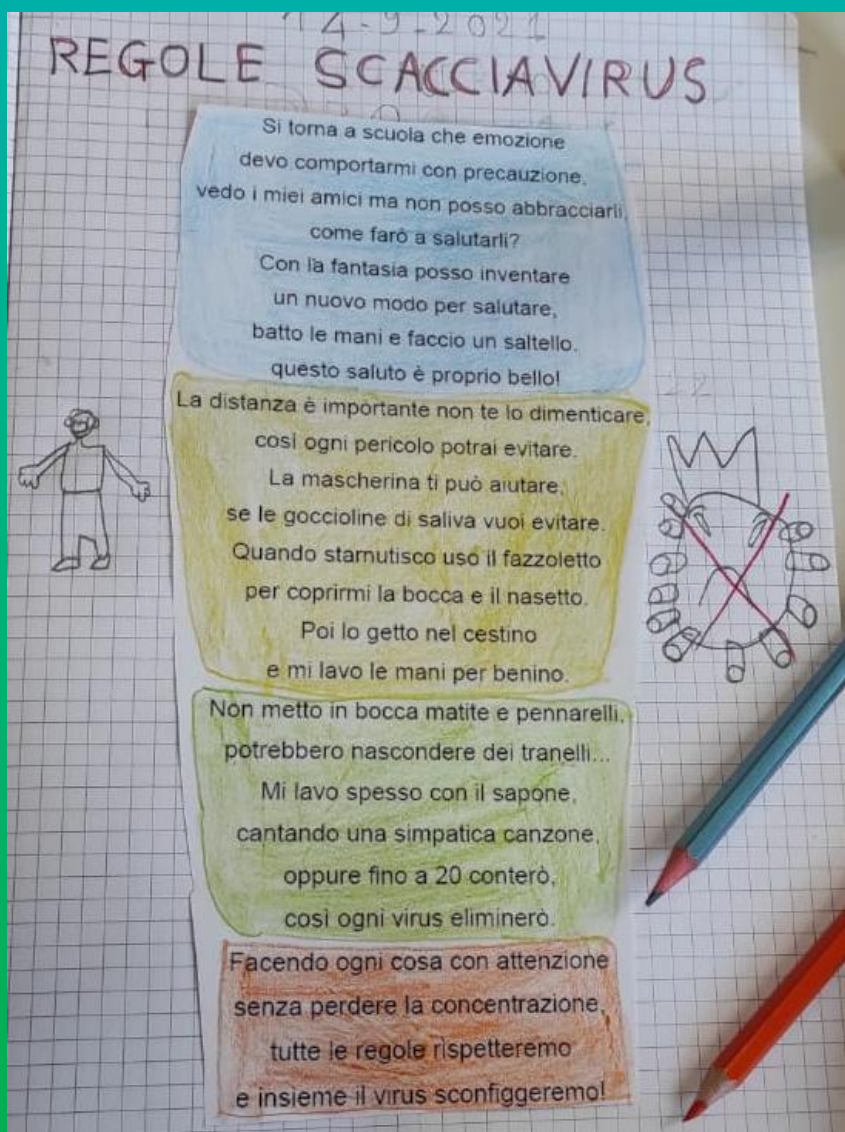 14-9-2021
REGOLE SCACCIAVIRUS
Si torna a scuola che emozione
devo comportarmi con precauzione,
vedo i miei amici ma non posso abbracciarli,
come farò a salutarli?
Con la fantasia posso inventare
un nuovo modo per salutare,
batto le mani e faccio un saltello,
questo saluto è proprio bello!
La distanza è importante non te lo dimenticare,
così ogni pericolo potrai evitare.
La mascherina ti può aiutare,
se le goccioline di saliva vuoi evitare.
Quando starnutisco uso il fazzoletto
per coprirmi la bocca e il nasetto.
Poi lo getto nel cestino
e mi lavo le mani per benino.
Non metto in bocca matite e pennarelli,
potrebbero nascondere dei tranelli...
Mi lavo spesso con il sapone,
cantando una simpatica canzone,
oppure fino a 20 conterò,
così ogni virus eliminerò.
Facendo ogni cosa con attenzione
senza perdere la concentrazione,
tutte le regole rispetteremo
e insieme il virus sconfiggeremo!